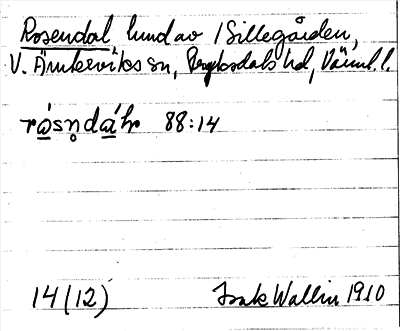 Rosendal hmd av /Sillegården,
V. Ämterviks sn, Fryksdals hd, Värml. l.
rásṇdáɫ 88:14
14(12) Isak Wallin 1910